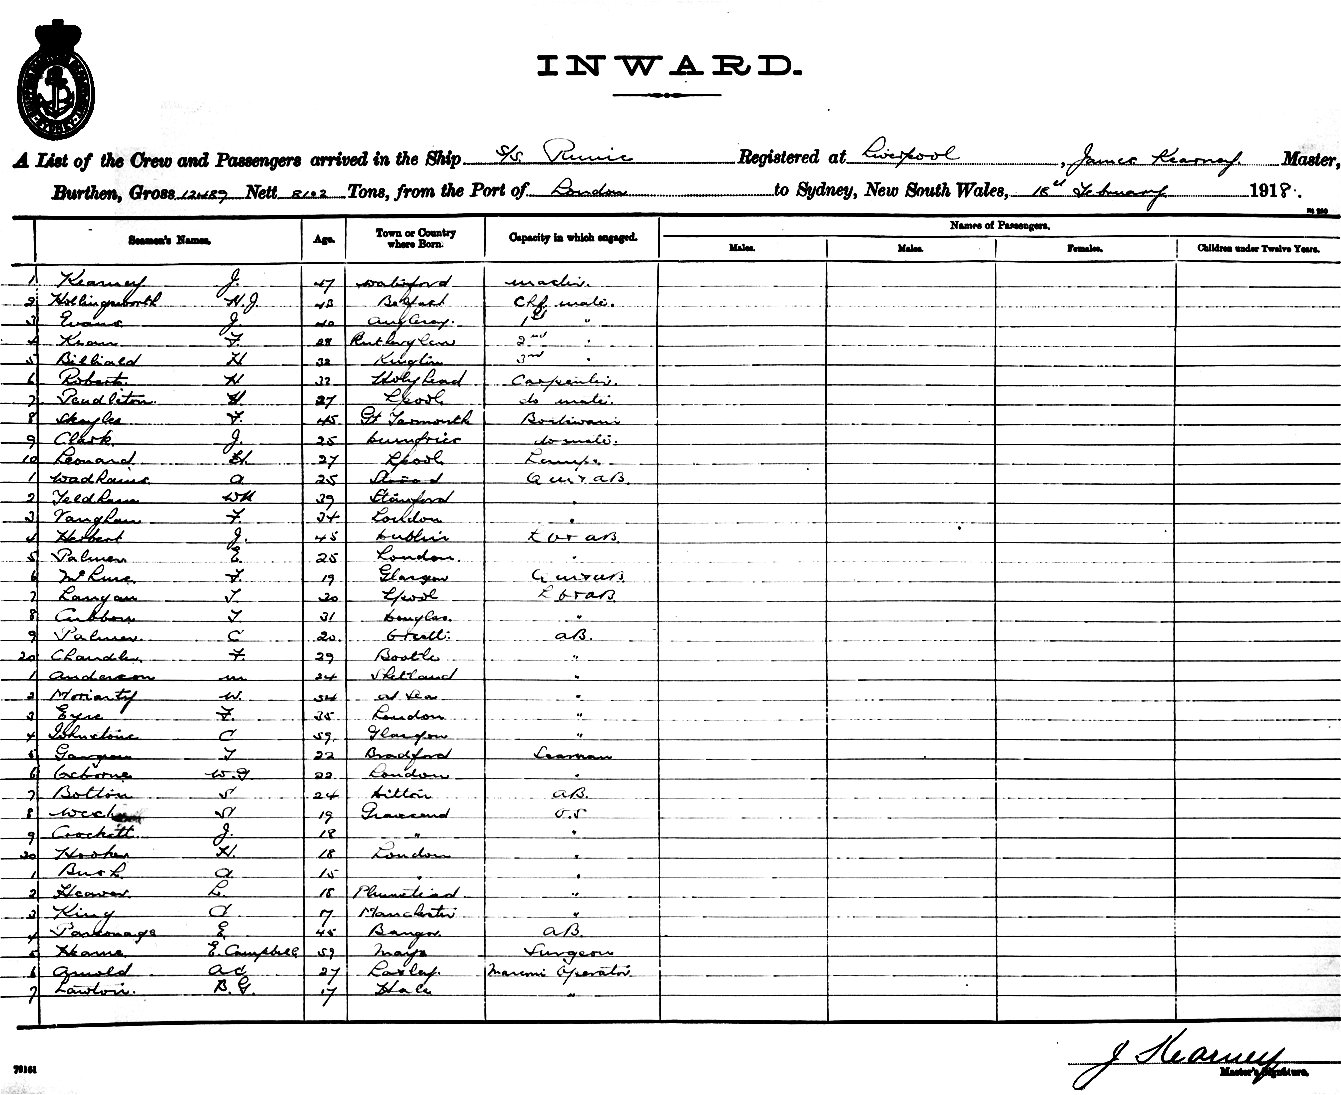 INWARD.
A List of the Crew and Passengers arrived in the Ship S/S Runic Registered at Liverpool, James Kearney Master,
Burthen, Gross 12489 Nett 8102 Tons, from the Port of London to Sydney, New South Wales, 18th February 1918.
Seamen's Names. Age. Town or Country where Born. Capacity in which engaged. Names of Passengers.
Males. Males. Females. Children under Twelve Years.
1 Kearney J. 47 Waterford master.
2 Hollingsworth H.J. 48 Belfast Chf mate.
3 Evans J. 40 Anglesey. 1st "
4 F. 28 Rutherglen 2nd "
5 H 32 3rd "
6 Roberts H 32 Holyhead Carpenter.
7 Pendleton H 27 Lpool do mate.
8 F. 45 Gt Yarmouth
9 Clark J. 25 Dumfries do mate.
10 Leonard 27 Lpool Lamps.
1 Wadhams a 25
2 Feldham WH 39 Stamford "
3 Vaughan F. 34 London "
4 Herbert J. 45 Dublin
5 Palmer E. 25 London. "
6 F. 19 Glasgow
7 Langan T 30 Lpool
8 Cubbon T 31 Douglas. "
9 Palmer C 20 aB.
20 Chandler F. 29 Bootle "
1 Anderson m 24 Shetland "
2 Moriarty W. 54 at Sea "
3 Eyre F. 35 London "
4 Johnstone C 59. Glasgow "
5 T 22 Bradford Seaman
6 Osborne W.G 22 London "
7 Bolton S 24 aB.
8 S 19 Gravesend O.S
9 Crockett J. 18 " "
30 Hooker H. 18 London "
1 Bush a 15 " "
2 Heaver L. 18 Plumstead "
3 King a 7 Manchester "
4 Parsonage E 45 Bangor aB.
5 Hearne E. Campbell 59 Mayo Surgeon
6 Arnold ac 27 Loxley. Marconi Operator
7 Lawton. B.G. 17 Hale "
J Kearney
Master's Signature.
79161